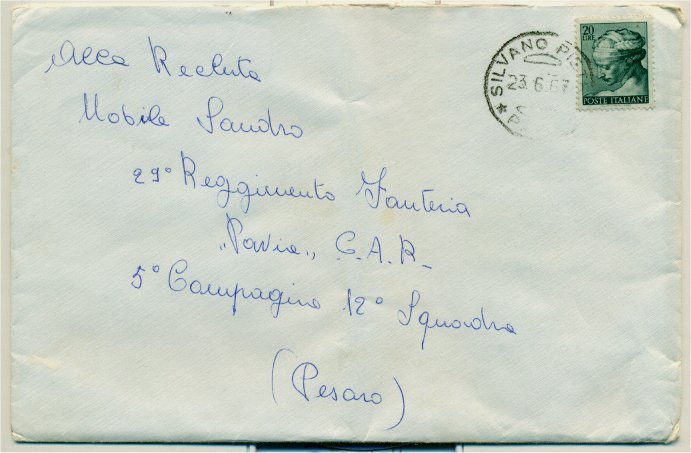 Alla Recluta
Nobile Sandro
29° Reggimento Fanteria
„Pavia„ C.A.R.
5° Compagnia 12° Squadra
(Pesaro)
SILVANO PI
23.6.67
20
LIRE
POSTE ITALIANE